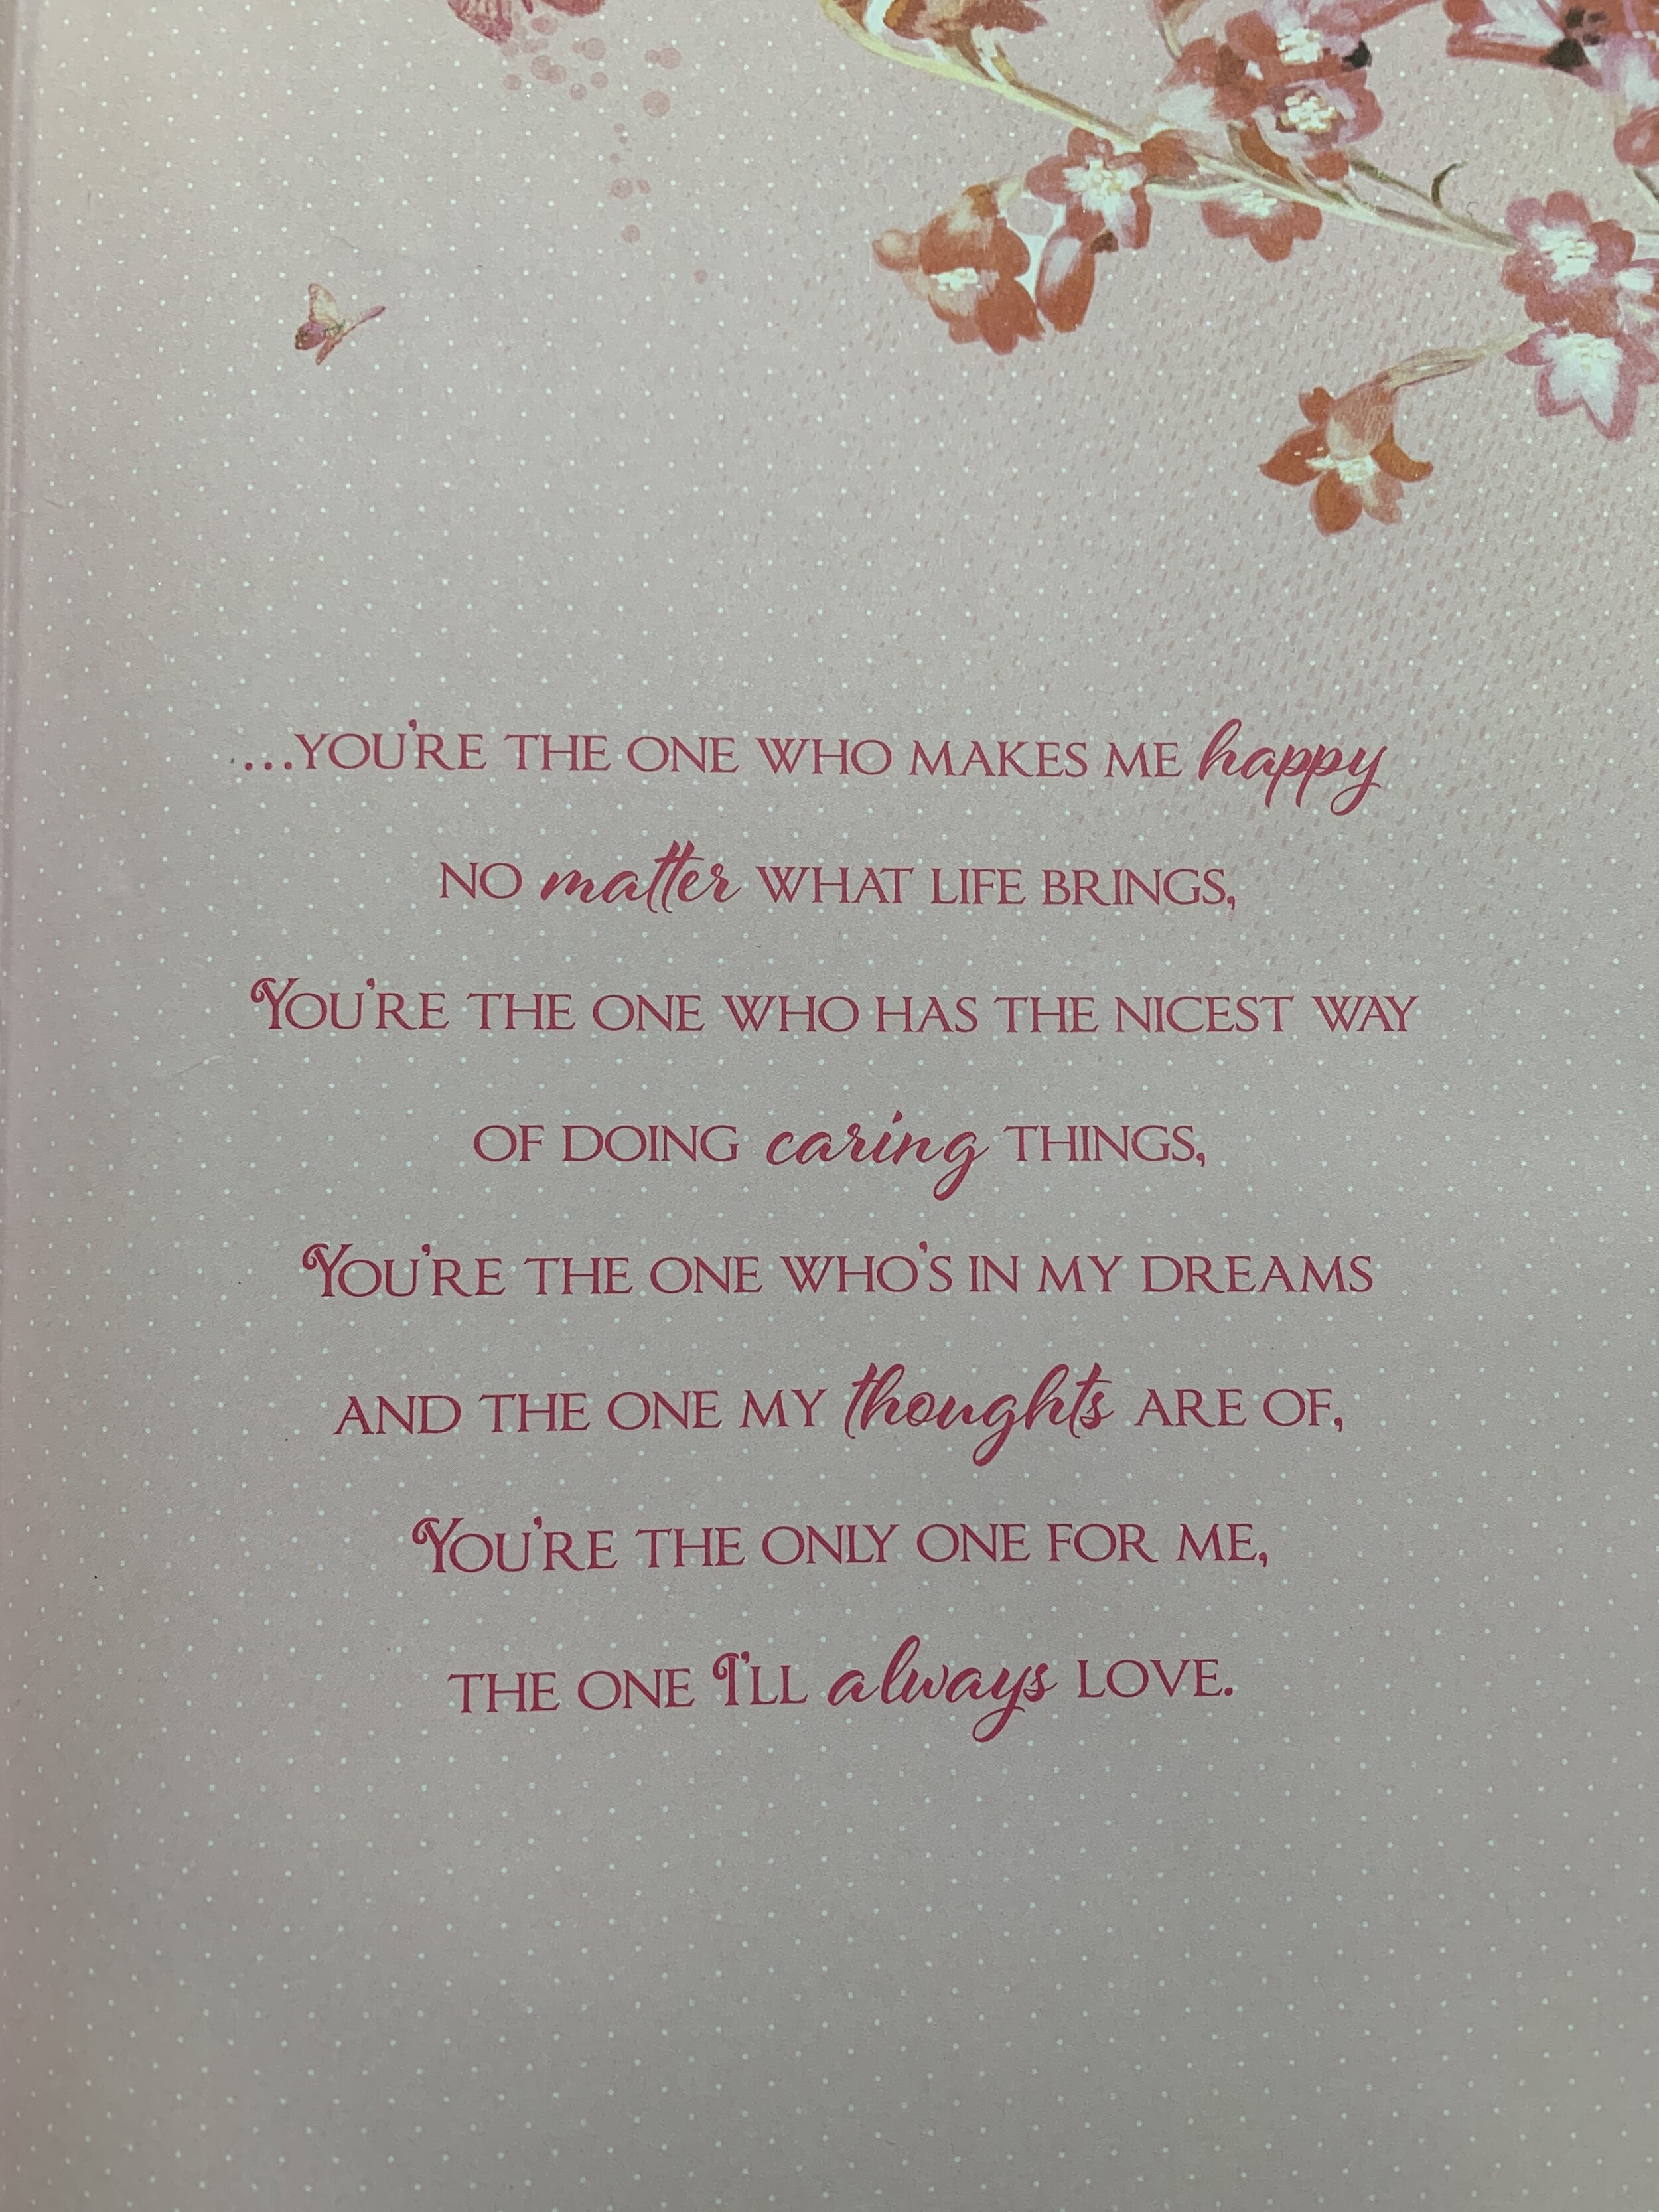 ...YOU'RE THE ONE WHO MAKES ME happy
NO matter WHAT LIFE BRINGS,
YOU'RE THE ONE WHO HAS THE NICEST WAY
OF DOING caring THINGS,
YOU'RE THE ONE WHO'S IN MY DREAMS
AND THE ONE MY thoughts ARE OF,
YOU'RE THE ONLY ONE FOR ME,
THE ONE I'LL always LOVE.